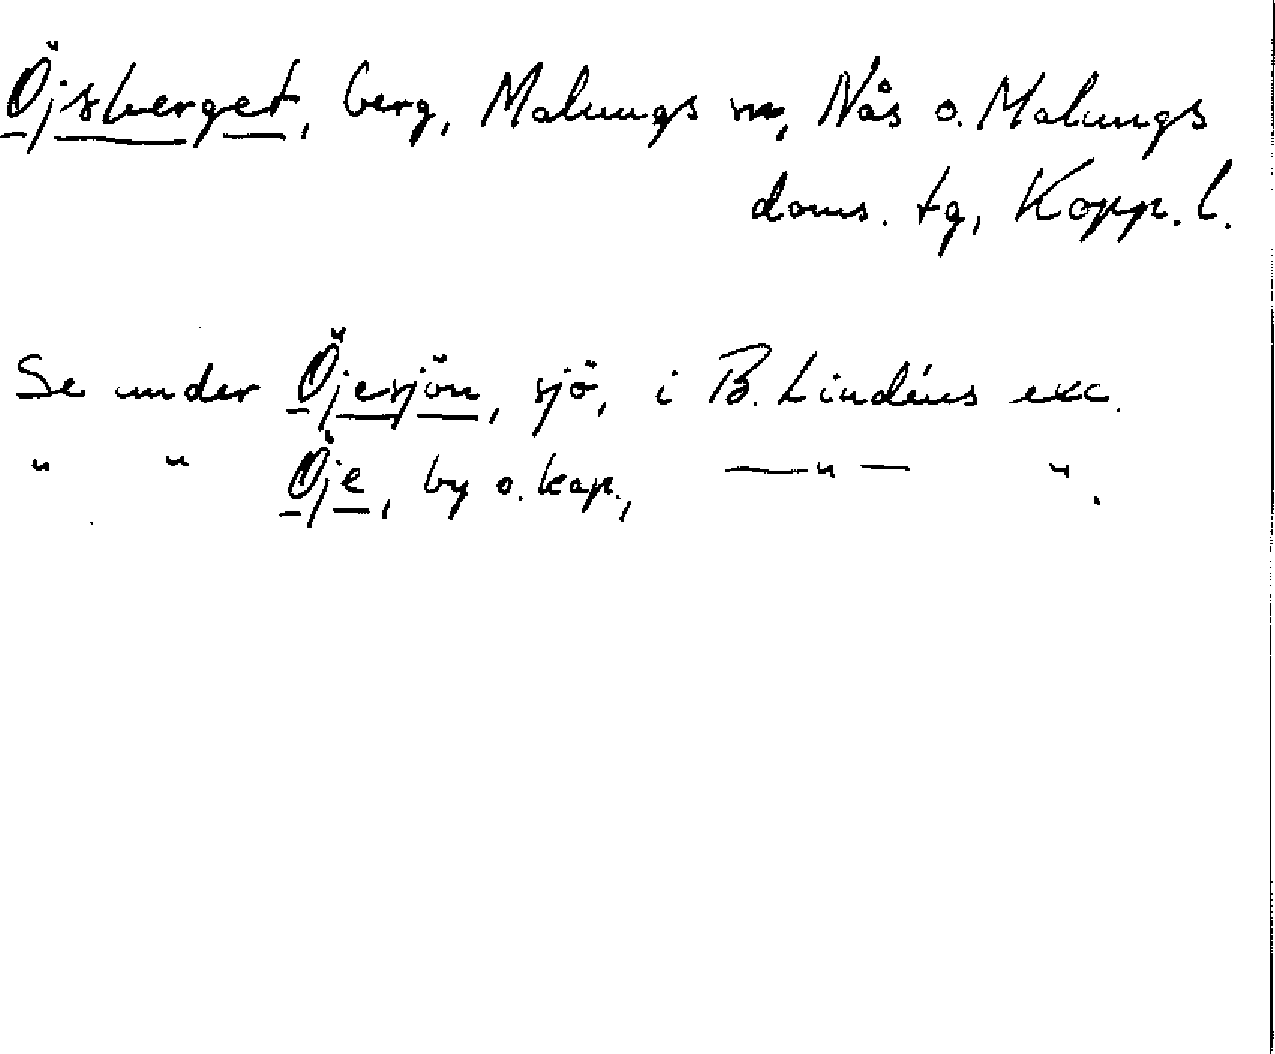 Öjsberget, berg, Malungs m, Nås o. Malungs
doms. tg, Kopp. l.
Se under Öjesjön, sjö, i B. Lindéns exc.
" " Öje, by o. kap., —"— ".